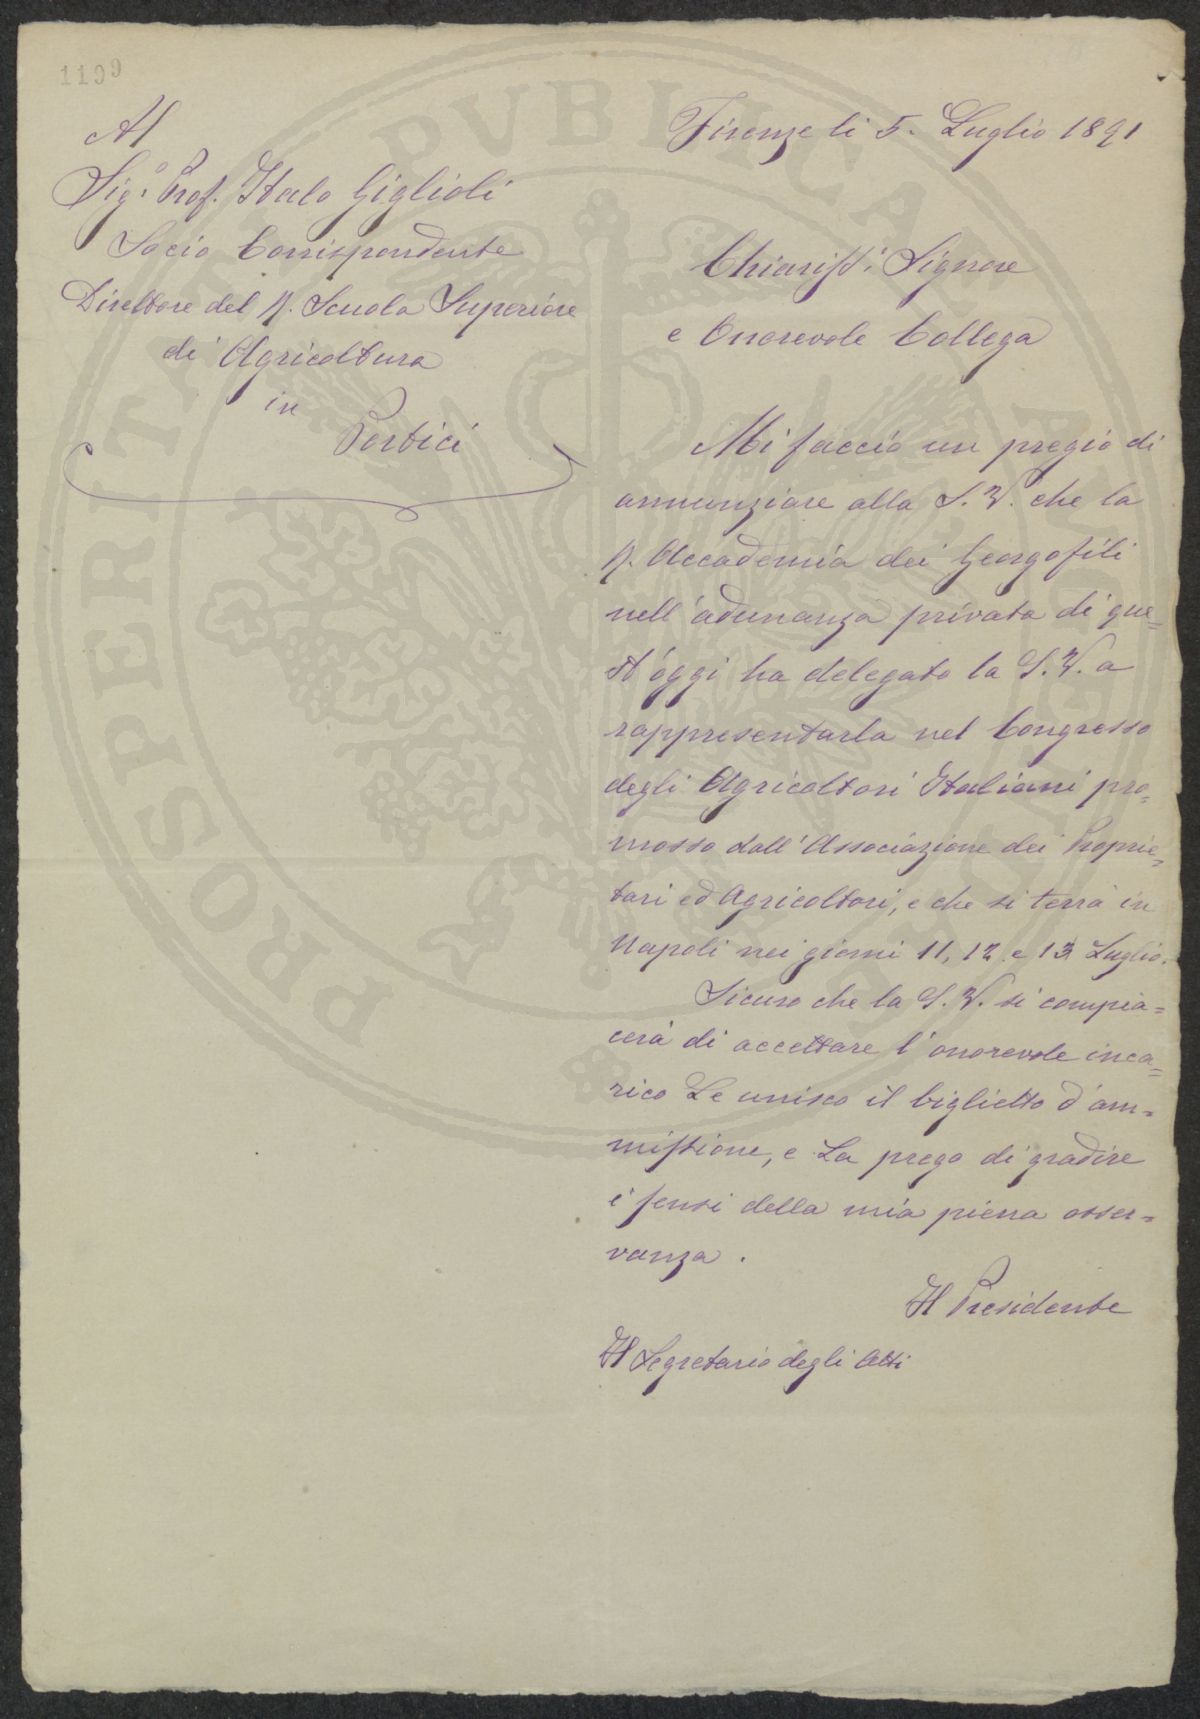 1199
Al
Sig.º Prof. Italo Giglioli
Socio Corrispondente
Direttore del R. Scuola Superiore
di Agricoltura
in
Portici
Firenze li 5. Luglio 1891
Chiariss.i Signore
e Onorevole Collega
Mi faccio un pregio di
annunziare alla S. V. che la
R. Accademia dei Georgofili
nell'adunanza privata di que=
st'oggi ha delegato la S. V. a
rappresentarla nel Congresso
degli Agricoltori Italiani pro=
mosso dall'Associazione dei Proprie=
tari ed Agricoltori, e che si terrà in
Napoli nei giorni 11, 12 e 13 Luglio.
Sicuro che la S. V. si compia=
cerà di accettare l'onorevole inca=
rico Le unisco il biglietto d'am=
missione, e La prego di gradire
i sensi della mia piena osser=
vanza.
Il Presidente
Il Segretario degli Atti
PROSPERITATI PVBLICAE AVGENDAE